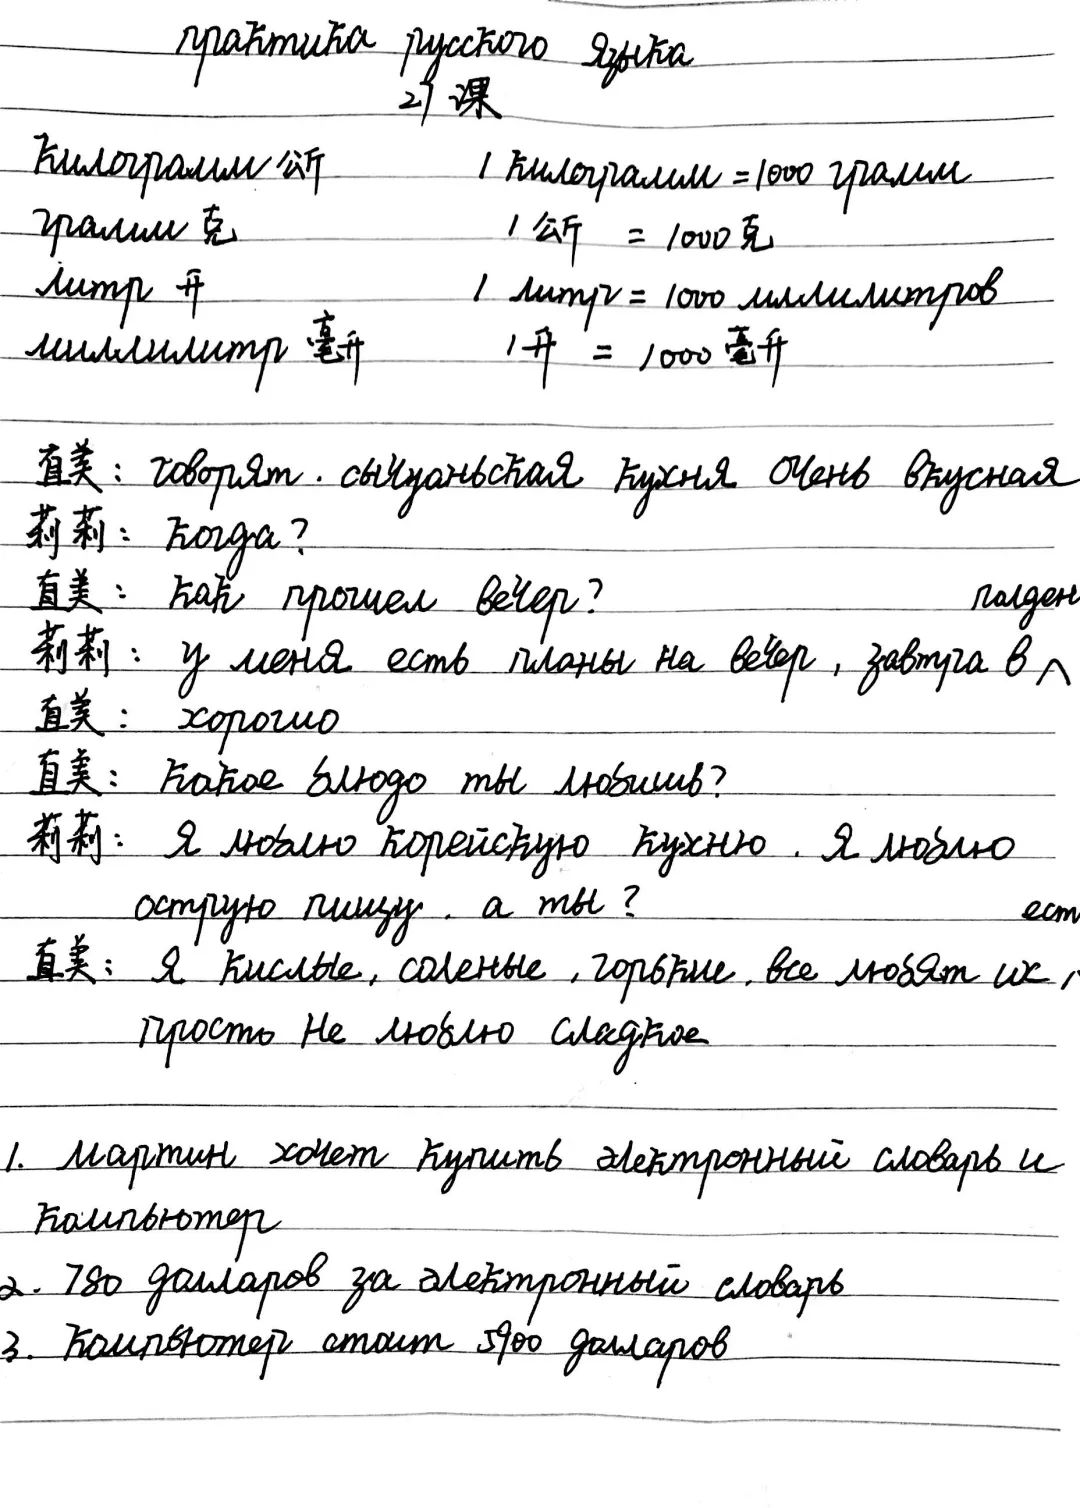 практика русского языка
27 课
Килограмм 公斤 1 Килограмм = 1000 грамм
грамм 克 1 公斤 = 1000 克
литр 升 1 литр = 1000 миллилитров
миллилитр 毫升 1 升 = 1000 毫升
直美: говорят. сычуаньская кухня очень вкусная
莉莉: Когда?
直美: как прошел вечер?
莉莉: у меня есть планы на вечер, завтра в полден
直美: хорошо
直美: Какое блюдо ты любишь?
莉莉: Я люблю корейскую кухню. Я люблю
острую пищу. а ты?
直美: Я кислые, соленые, горькие, все любят их, ест
прость не люблю сладкое
1. Мартин хочет купить электронный словарь и
компьютер
2. 780 долларов за электронный словарь
3. Компьютер стоит 5900 долларов